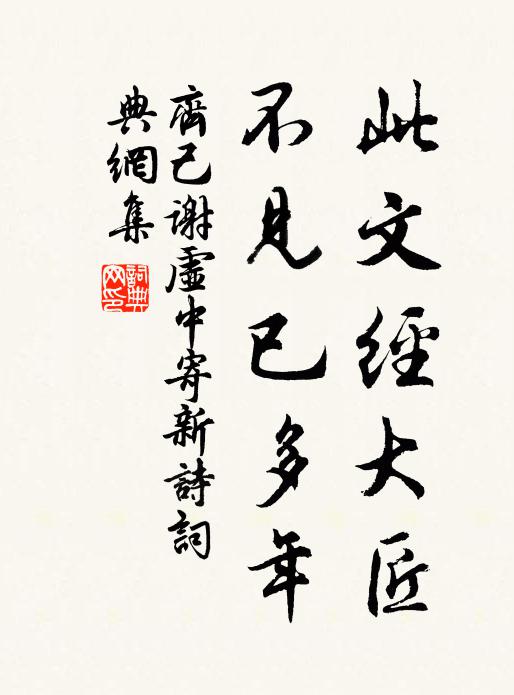 此文經大匠
不見已多年
齊己謝虛中寄新詩詞
典網集
詞典網印